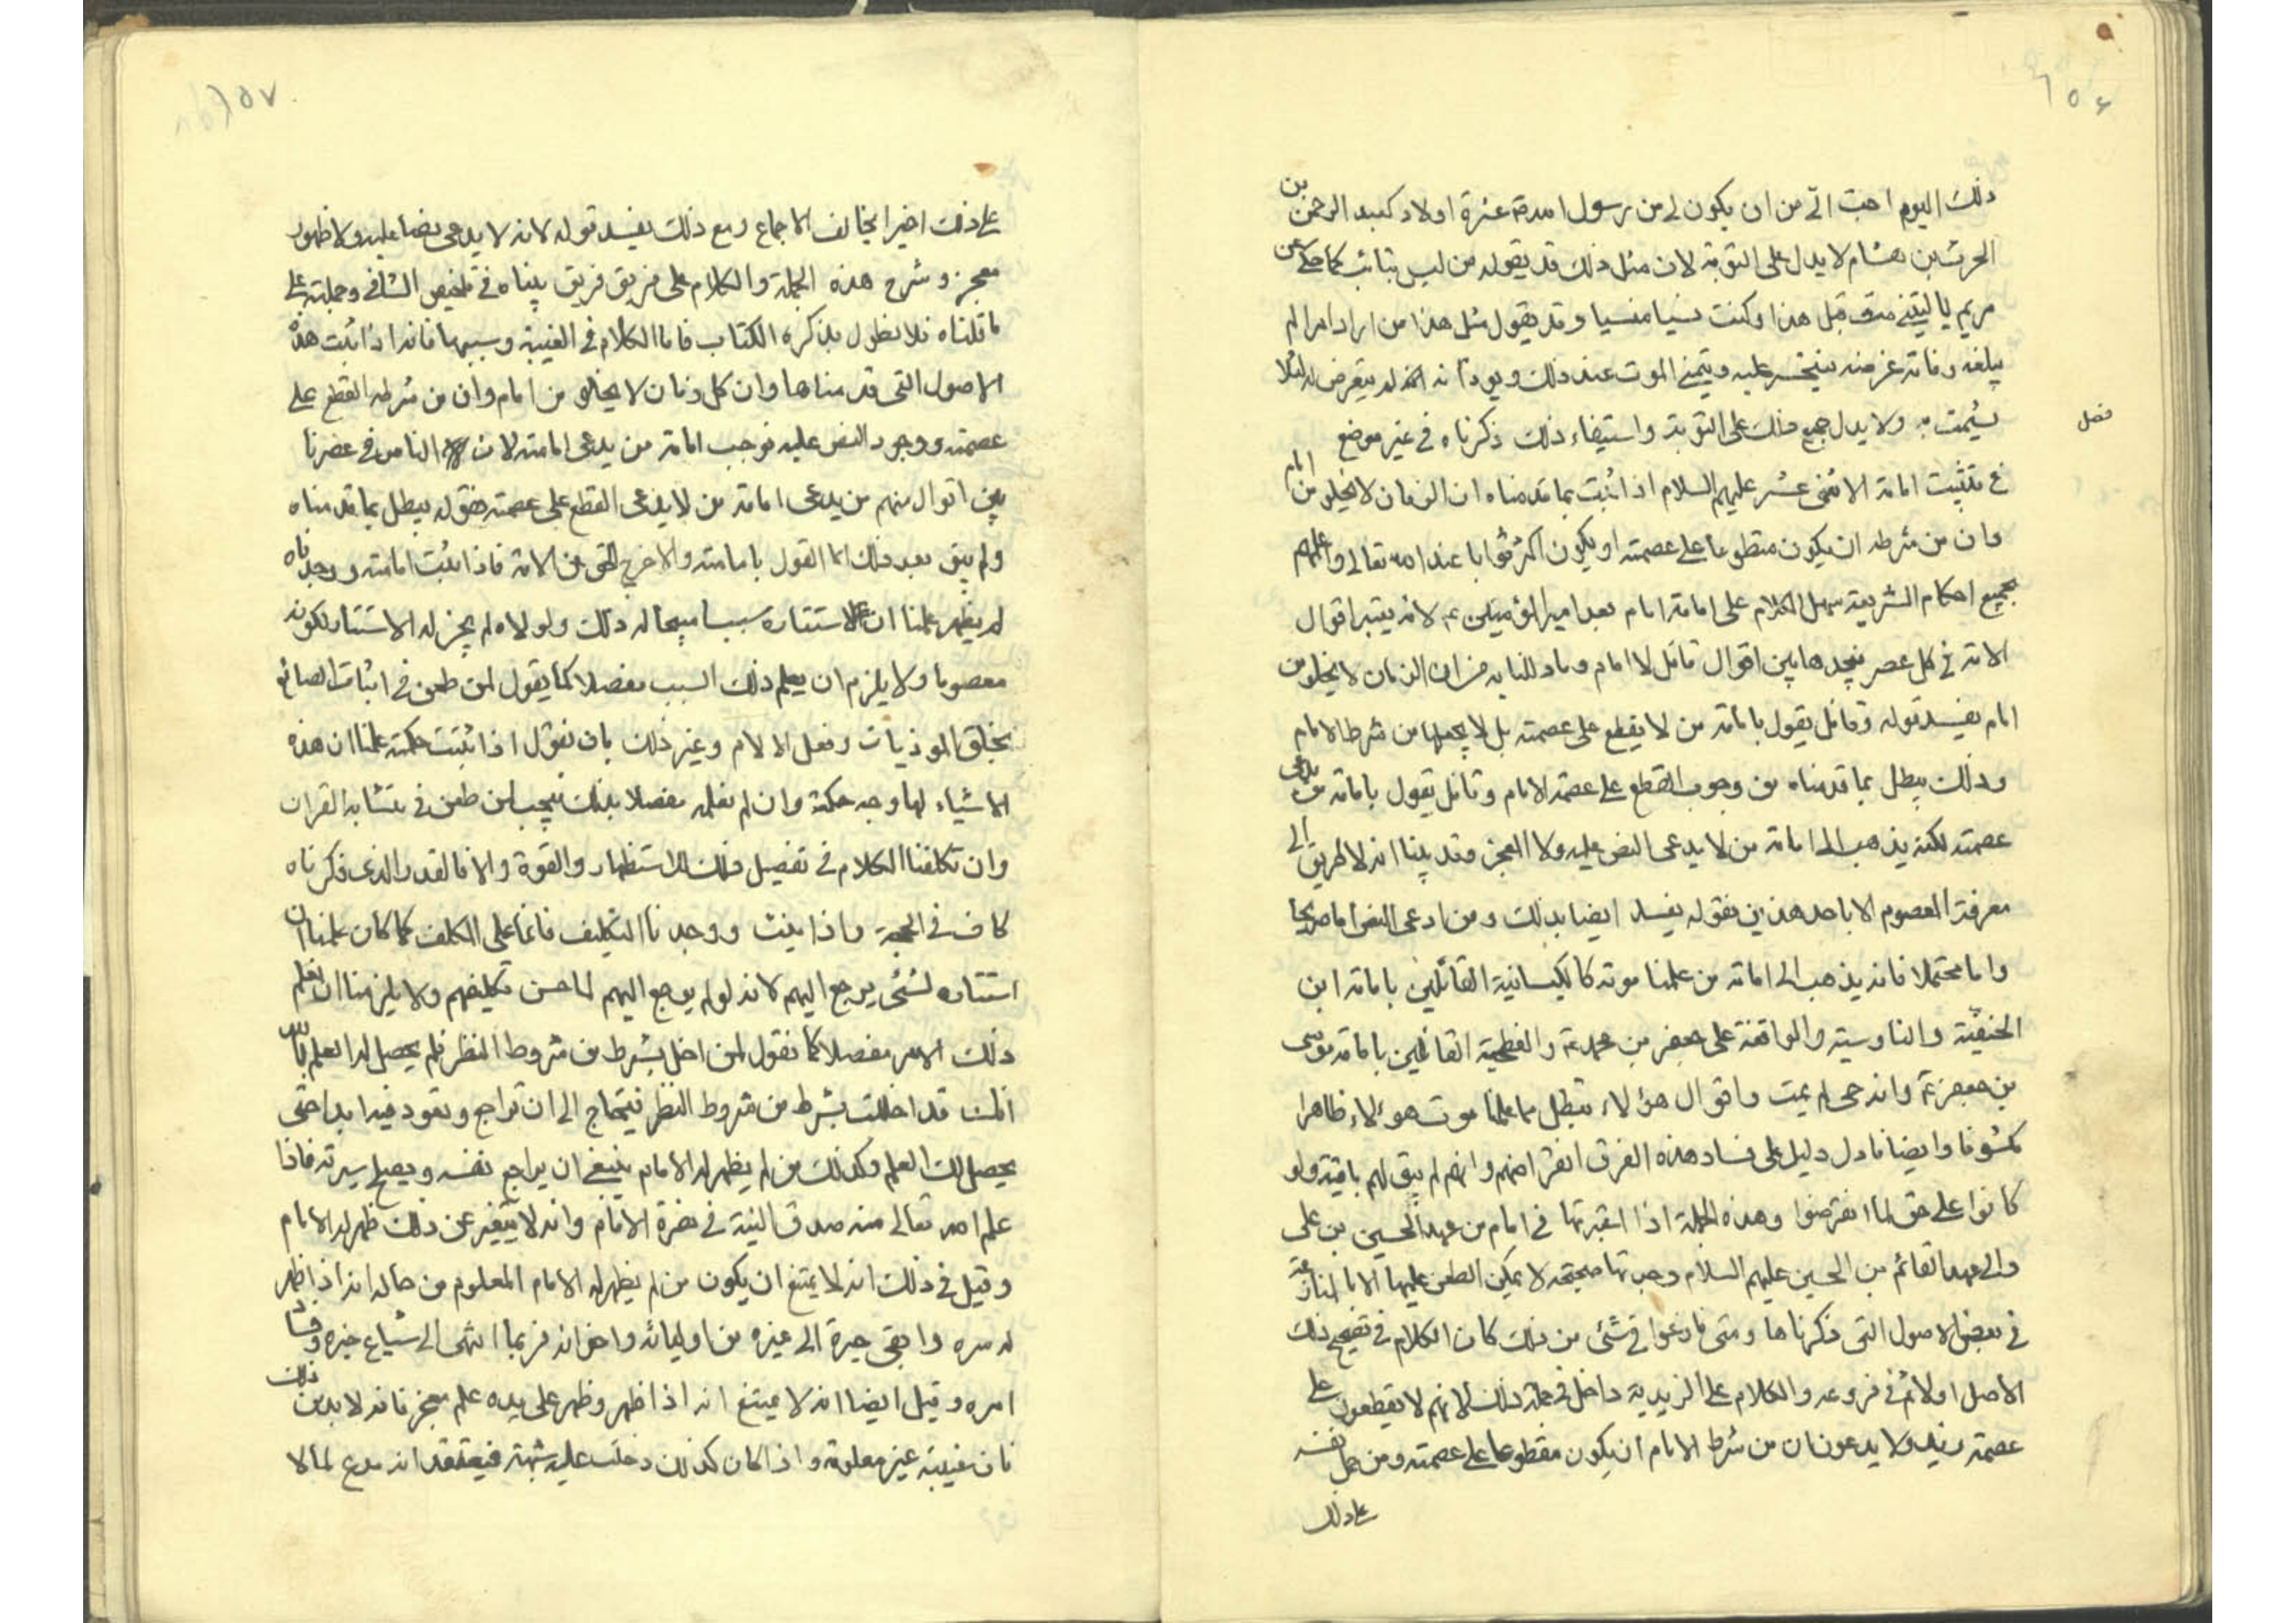 ٢٥٦
ذلك اليوم احب الي من ان يكون لي من رسول الله عشرة اولاد كعبد الرحمن بن
الحرث بن هشام لا يدل على التوبة لان مثل ذلك قد يقوله من ليس بتائب كما حكي عن
مريم يا ليتني مت قبل هذا وكنت نسيا منسيا وقد يقول مثل هذا من اراد امرا لم
يبلغه وفاته غرضه فيتحسر عليه ويتمنى الموت عند ذلك ويود انه لم يتعرض له لئلا
يشمت به ولا يدل جميع ذلك على التوبة واستيفاء ذلك ذكرناه في غير موضع
فصل
في تثبيت امامة الاثنى عشر عليهم السلام اذا ثبت بما قدمناه ان الزمان لا يخلو من امام
وان من شرطه ان يكون مقطوعا على عصمته او يكون اكثر ثوابا عند الله تعالى واعلمهم
بجميع احكام الشريعة سهل الكلام على امامة امام بعد امير المؤمنين ع لانه يعتبر اقوال
الامة في كل عصر فنجدها بين اقوال قائل لا امام وما دللنا به من ان الزمان لا يخلو من
امام يفسد قوله وقائل يقول بامامة من لا يقطع على عصمته بل لا يجعلها من شرط الامام
وذلك يبطل بما قدمناه من وجوب القطع على عصمة الامام وقائل يقول بامامة من يدعى
عصمته لكنه يذهب الى امامة من لا يدعى النص عليه ولا المعجز وقد بينا انه لا طريق الى
معرفة المعصوم الا باحد هذين فقوله يفسد ايضا بذلك ومن ادعى النص اما صريحا
واما محتملا فانه يذهب الى امامة من علمنا موته كالكيسانية القائلين بامامة ابن
الحنفية والناوسية والواقفة على جعفر بن محمد ع والفطحية القائلين بامامة موسى
بن جعفر ع وانه حى لم يمت واقوال هؤلاء تبطل بما علمنا موت هؤلاء ظاهرا
مكشوفا وايضا فادل دليل على فساد هذه الفرق انقراضهم وانهم لم يبق لهم باقية ولو
كانوا على حق لما انقرضوا وهذه الجملة اذا اعتبرتها في امام من عهد الحسين بن على
والى عهد القائم بن الحسين عليهم السلام وجدتها صحيحة لا يمكن الطعن عليها الا بالمنازعة
في بعض الاصول التى ذكرناها ومتى نازعوا في شئ من ذلك كان الكلام في تصحيح ذلك
الاصل اولا ثم في فروعه والكلام على الزيدية داخل في جملة ذلك لانهم لا يقطعون على
عصمة زيد ولا يدعون ان من شرط الامام ان يكون مقطوعا على عصمته ومن حمل نفسه
على ذلك
٢٥٧
على ذلك اخيرا يخالف الاجماع ومع ذلك يفسد قوله لانه لا يدعى نصا عليه ولا ظهور
معجز وشرح هذه الجملة والكلام على فريق فريق بيناه في تلخيص الشافي وجملته على
ما قلناه فلا نطول بذكره الكتاب فاما الكلام في الغيبة وسببها فانه اذا ثبت هذه
الاصول التى قدمناها وان كل زمان لا يخلو من امام وان من شرطه القطع على
عصمته ووجود النص عليه فوجب امامة من يدعى امامته لان الناس في عصرنا
بين اقوال منهم من يدعى امامة من لا يدعى القطع على عصمته فقوله يبطل بما قدمناه
ولم يبق بعد ذلك الا القول بامامته والا خرج الحق من الامة فاذا ثبت امامته ووجدناه
لم يظهر علمنا ان لاستتاره سببا مبيحا له ذلك ولولاه لم يجز له الاستتار لكونه
معصوما ولا يلزم ان يعلم ذلك السبب مفصلا كما يقول لمن طعن في اثبات الصانع
بخلق الموذيات وفعل الالام وغير ذلك بان نقول اذا ثبتت حكمته علمنا ان هذه
الاشياء لها وجه حكمة وان لم نعلمه مفصلا بذلك نجيب لمن طعن في متشابه القران
وان تكلفنا الكلام في تفصيل ذلك للاستظهار والقوة والا فالقدر الذى ذكرناه
كاف في الحجة واذا ثبت ووجدنا التكليف قائما على المكلف كما كان علمنا ان
استتاره لشئ يرجع اليهم لانه لو لم يرجع اليهم لما حسن تكليفهم ولا يلزمنا ان نعلم
ذلك الامر مفصلا كما نقول لمن اخل بشرط من شروط النظر فلم يحصل له العلم بالله
انك قد اخللت بشرط من شروط النظر فتحتاج الى ان تراجع وتعود فيه ابدا حتى
يحصل لك العلم وكذلك من لم يظهر له الامام ينبغي ان يراجع نفسه ويصلح سيرته فاذا
علم الله تعالى منه صدق النية في نصرة الامام وانه لا يتغير عن ذلك ظهر له الامام
وقيل في ذلك انه لا يمتنع ان يكون من لم يظهر له الامام المعلوم من حاله انه اذا ظهر
له سره والقى خبره الى غيره من اوليائه واخوانه فربما انتهى الى شياع خبره وفساد
امره وقيل ايضا انه لا يمتنع انه اذا ظهر وظهر على يده علم معجز فانه لا بد من ذلك
فان غيبته غير معلومة واذا كان كذلك دخلت عليه شبهة فيعتقد انه مدع لما لا